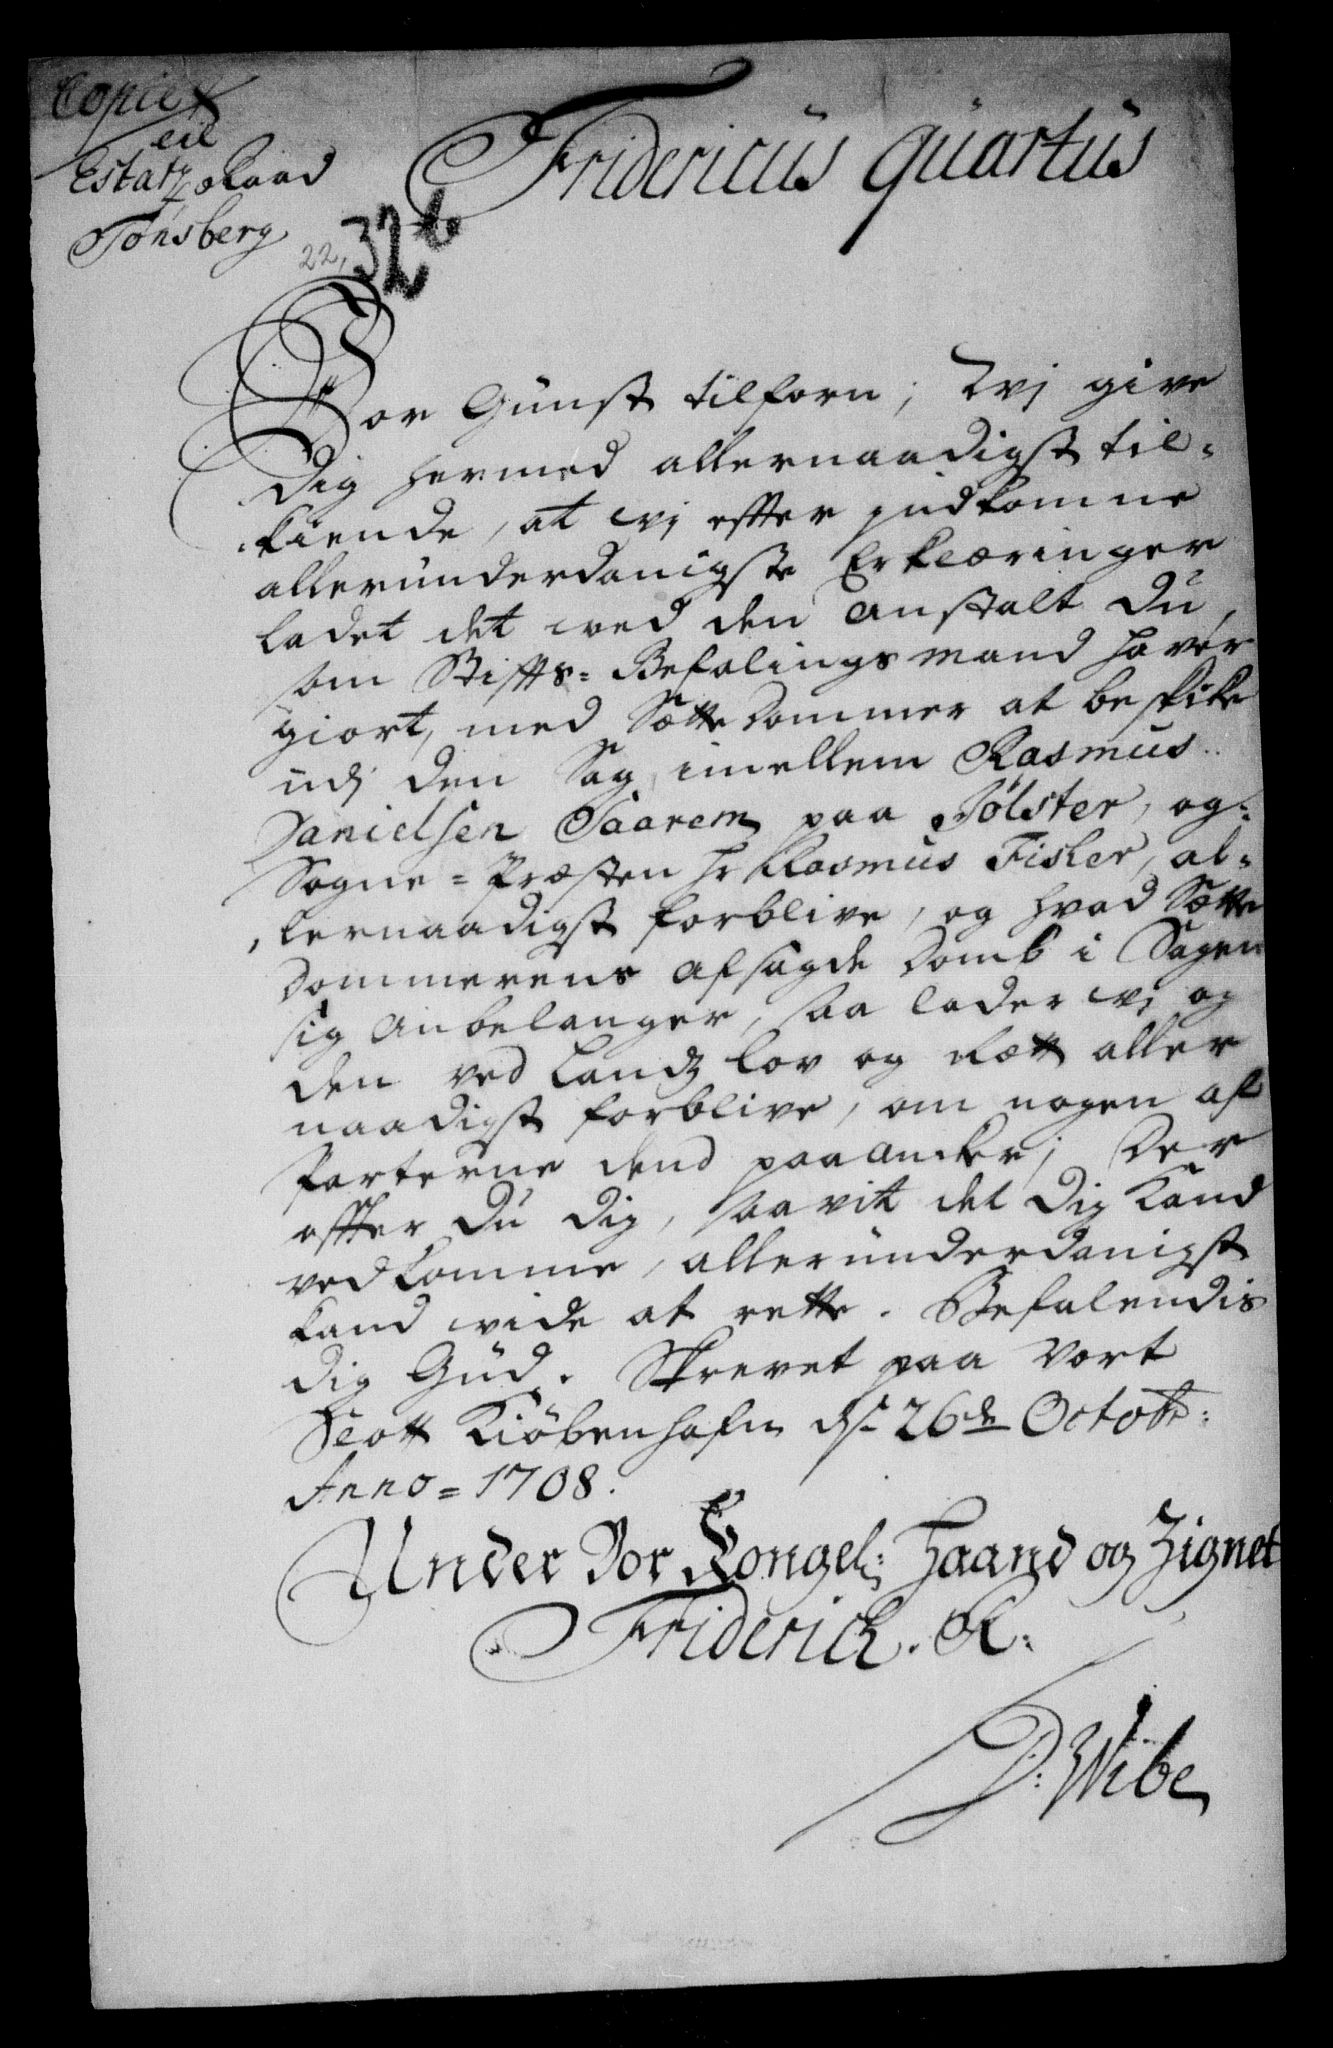 Copie
til
Estatz Raad
Tønsberg
Fridericus quartus
22, 32 b
Vor Gunst tilforn; Wj give
Dig hermed allernaadigst til-
kiende, at wj effter jndkomne
allerunderdanigste Erklæringer
ladet det wed den Anstalt Du,
som Stiffts-Befalingsmand haver
giort, med Sættedommer at beskike
udj den Sag imellem Rasmus
Danielsen Saarem paa Jølster, og
Sogne-Præsten Hr Rasmus Fisker, al-
lernaadigst forblive, og hvad Sætte
Dommerens afsagde Domb i Sagen
sig Anbelanger, saa lader wj og
den ved Landz Lov og Rætt aller
naadigst forblive, om nogen af
Parterne dend paaancker; Der
effter Du Dig, saavit det Dig Kand
vedkomme, allerunderdanigst
kand wide at rette. Befalendis
Dig Gud. Skrevet paa Vort
Slott Kiöbenhafn ds. 26de Octobr:
Anno=1708.
Under Vor Kongel: Haand og Zignet
Friderich. R:
D: Wibe